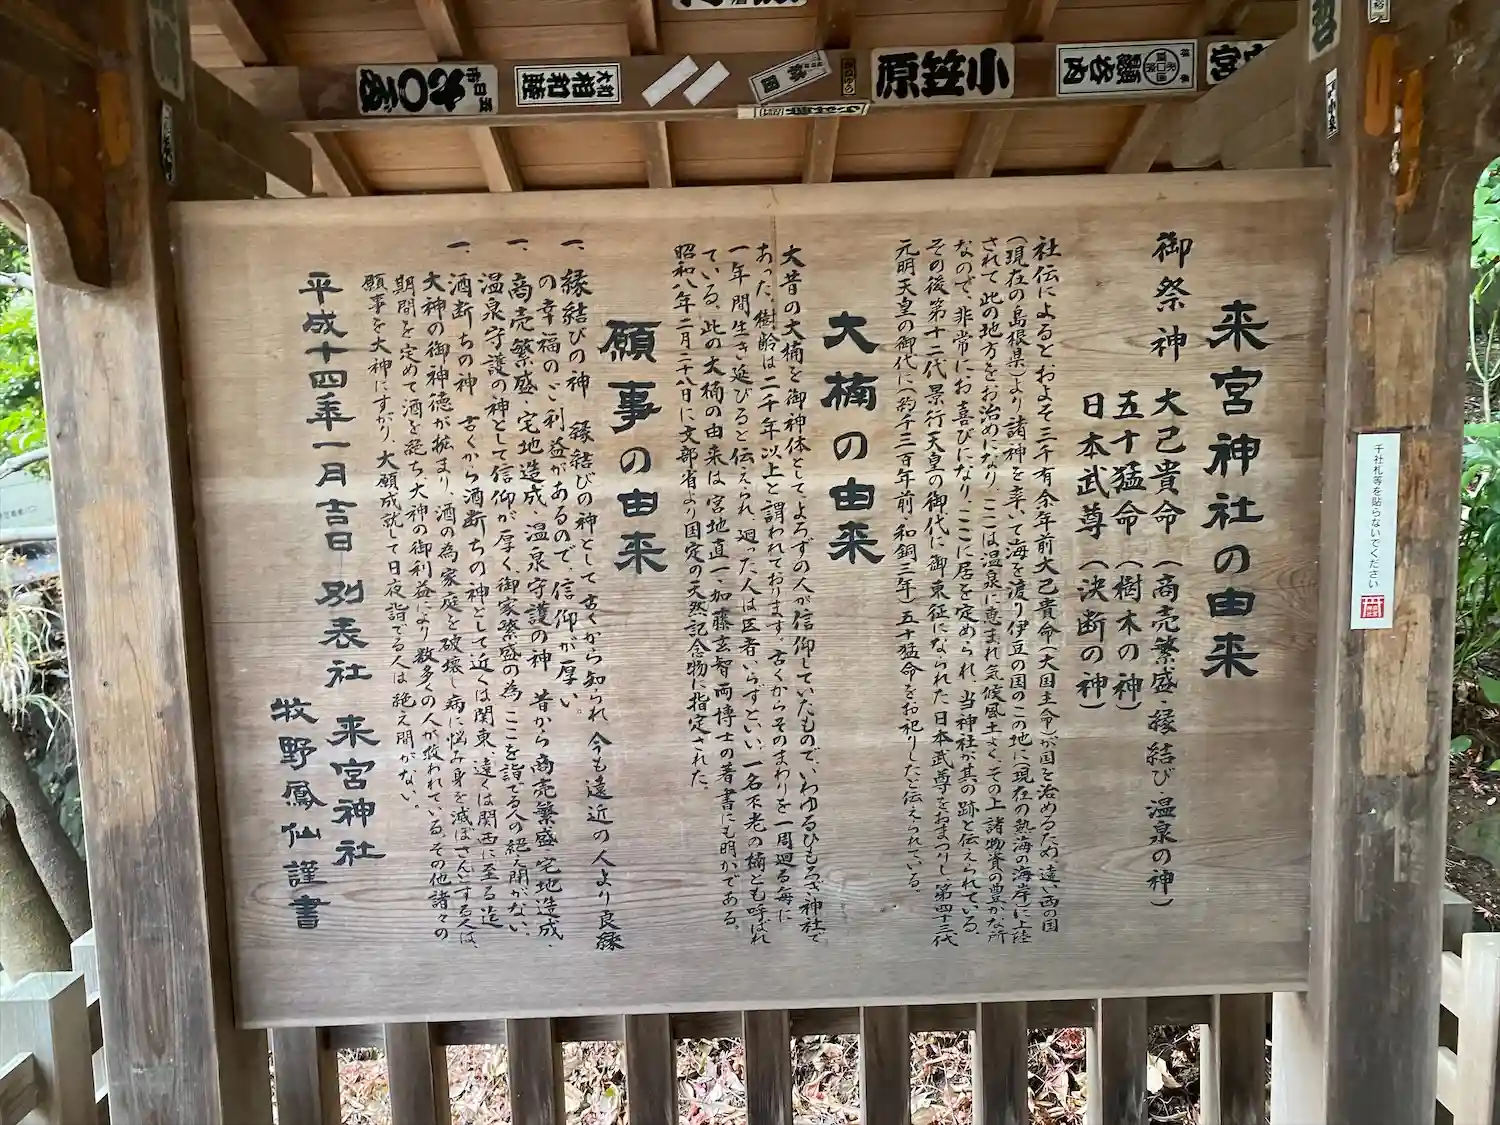 来宮神社の由来
御祭神 大己貴命(商売繁盛・縁結び・温泉の神)
五十猛命(樹木の神)
日本武尊(決断の神)
社伝によるとおよそ三千有余年前大己貴命(大国主命)が国を治めるため遠い西の国
(現在の島根県)より諸神を率いて海を渡り伊豆の国のこの地に(現在の熱海の海岸)に上陸
されて此の地方をお治めになり、ここは温泉に恵まれ気候風土よく、その上諸物資の豊かな所
なので、非常にお喜びになり、ここに居を定められ、当神社が其の跡と伝えられている。
その後第十二代景行天皇の御代に御東征になられた日本武尊をおまつりし、第四十三代
元明天皇の御代に(約千三百年前和銅三年)五十猛命をお祀りしたと伝えられている。
大楠の由来
大昔の大楠を御神体としてよろずの人が信仰していたもので、いわゆるひもろぎ神社で
あった。樹齢は二千年以上と謂われております。古くからそのまわりを一周廻る毎に
一年間生き延びると伝えられ、廻った人は医者いらずといい、一名不老の楠とも呼ばれ
ている。此の大楠の由来は、宮地直一、加藤玄智両博士の著書にも明かである。
昭和八年二月二十八日に文部省より国定の天然記念物に指定された。
願事の由来
一、縁結びの神 縁結びの神として古くから知られ 今も遠近の人より良縁
の幸福のご利益があるので、信仰が厚い。
一、商売繁盛、宅地造成、温泉守護の神 昔から商売繁盛、宅地造成、
温泉守護の神として信仰が厚く、御家繁盛の為、ここを詣でる人の絶え間がない。
一、酒断ちの神 古くから酒断ちの神として近くは関東、遠くは関西に至る迄
大神の御神徳が拡まり、酒の為家庭を破壊し病に悩み身を滅ぼさんとする人は、
期間を定めて酒を絶ち大神の御利益により数多くの人が救われている。その他諸々の
願事を大神にすがり、大願成就して日夜詣でる人は絶え間がない。
平成十四年一月吉日 別表社 来宮神社
牧野鳳仙謹書
千社札等を貼らないでください
小笠原
大相和睦